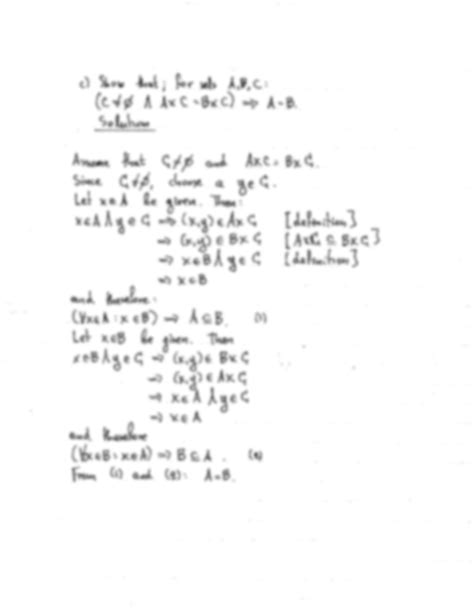 c) Show that; for sets A, B, C:
(C ≠ ∅ ∧ A×C = B×C) ⇒ A=B.
Solution
Assume that C ≠ ∅ and A×C = B×C.
Since C ≠ ∅, choose a y∈C.
Let x∈A be given. Then:
x∈A ∧ y∈C ⇒ (x,y)∈A×C [definition]
⇒ (x,y)∈B×C [A×C ⊆ B×C]
⇒ x∈B ∧ y∈C [definition]
⇒ x∈B
and therefore:
(∀x∈A : x∈B) ⇒ A⊆B. (1)
Let x∈B be given. Then
x∈B ∧ y∈C ⇒ (x,y)∈B×C
⇒ (x,y)∈A×C
⇒ x∈A ∧ y∈C
⇒ x∈A
and therefore
(∀x∈B : x∈A) ⇒ B⊆A. (2)
From (1) and (2): A=B.